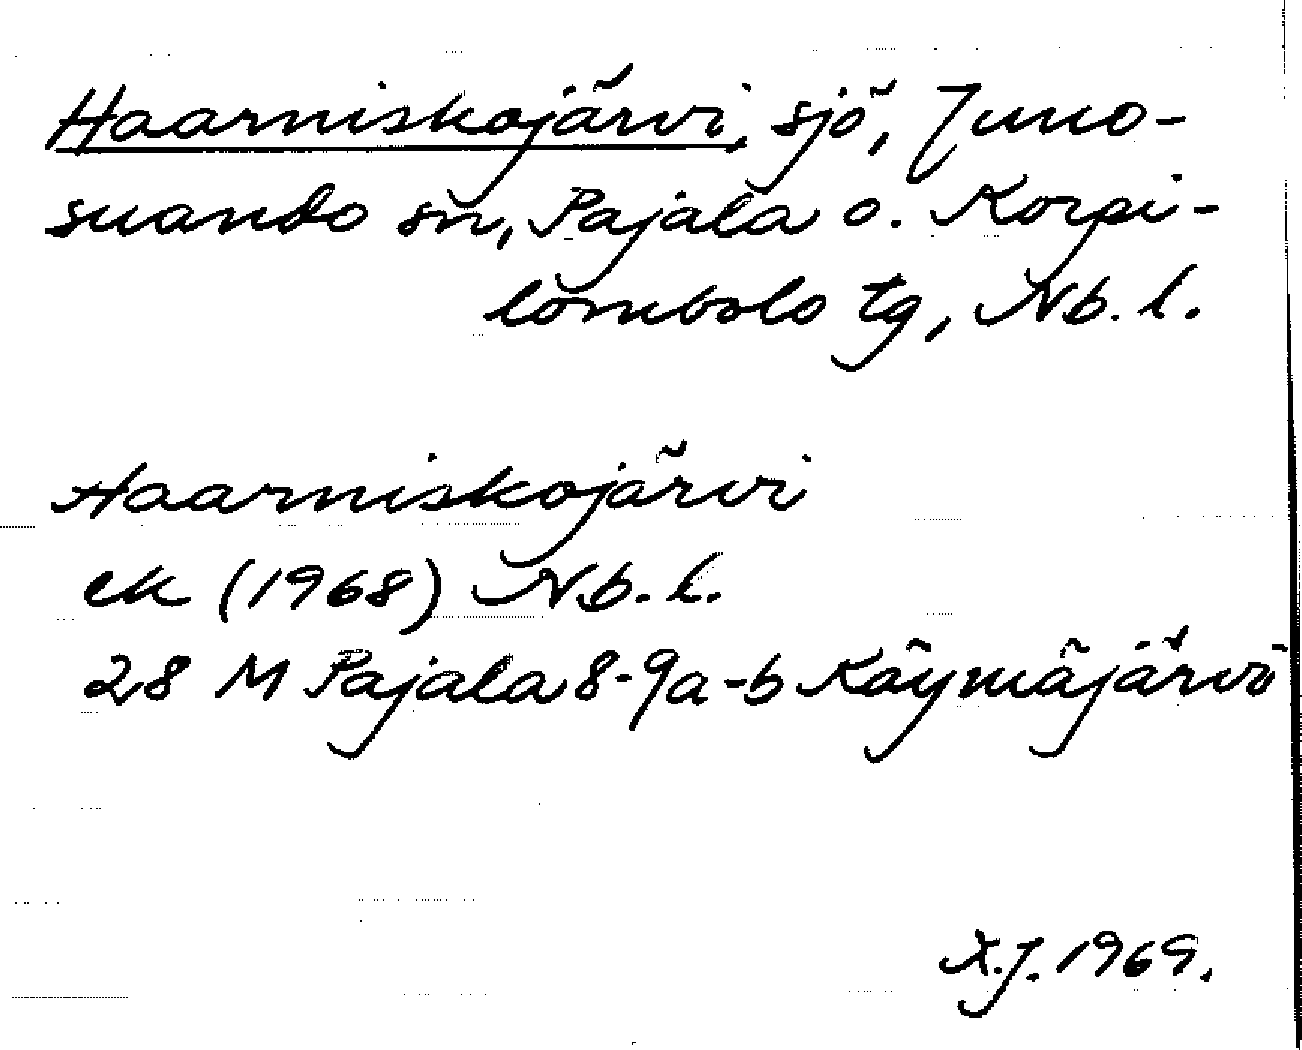 Haarniskojärvi, sjö, Juno-
suando sn, Pajala o. Korpi-
lombolo tg, Nb. l.
Haarniskojärvi
ek (1968) Nb. l.
28 M Pajala 8-9a-b Käymäjärvi
1969.